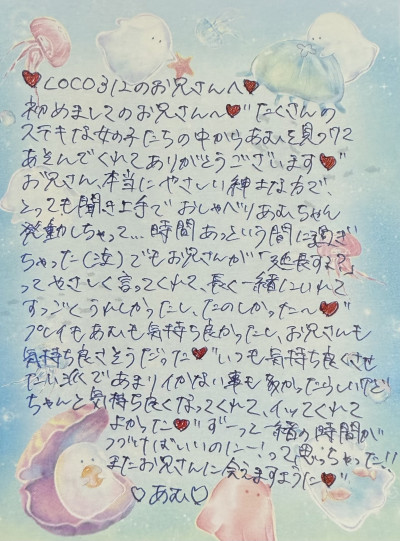 ♥LOCO312のお兄さんへ♥
初めましてのお兄さんへ♥" たくさんの
ステキな女の子たちの中からあむを見つけて
あそんでくれてありがとうございます♥"
お兄さん、本当にやさしい紳士な方で、
とっても聞き上手で おしゃべりあむちゃん
発動しちゃって… 時間あっという間に過ぎ
ちゃった(泣) でもお兄さんが「延長する?」
ってやさしく言ってくれて、長く一緒にいれて
すっごくうれしかったし、たのしかった〜♥"
プレイもあむも気持ち良かったし、お兄さんも
気持ち良さそうだった♥" いつも気持ち良くさせ
たい派であまりイかない事も多かったらしいけど
ちゃんと気持ち良くなってくれて、イッてくれて
よかった♥" ずーっと一緒の時間が
つづけばいいのにー!って思っちゃった!!
またお兄さんに会えますように♥"
♡あむ♡